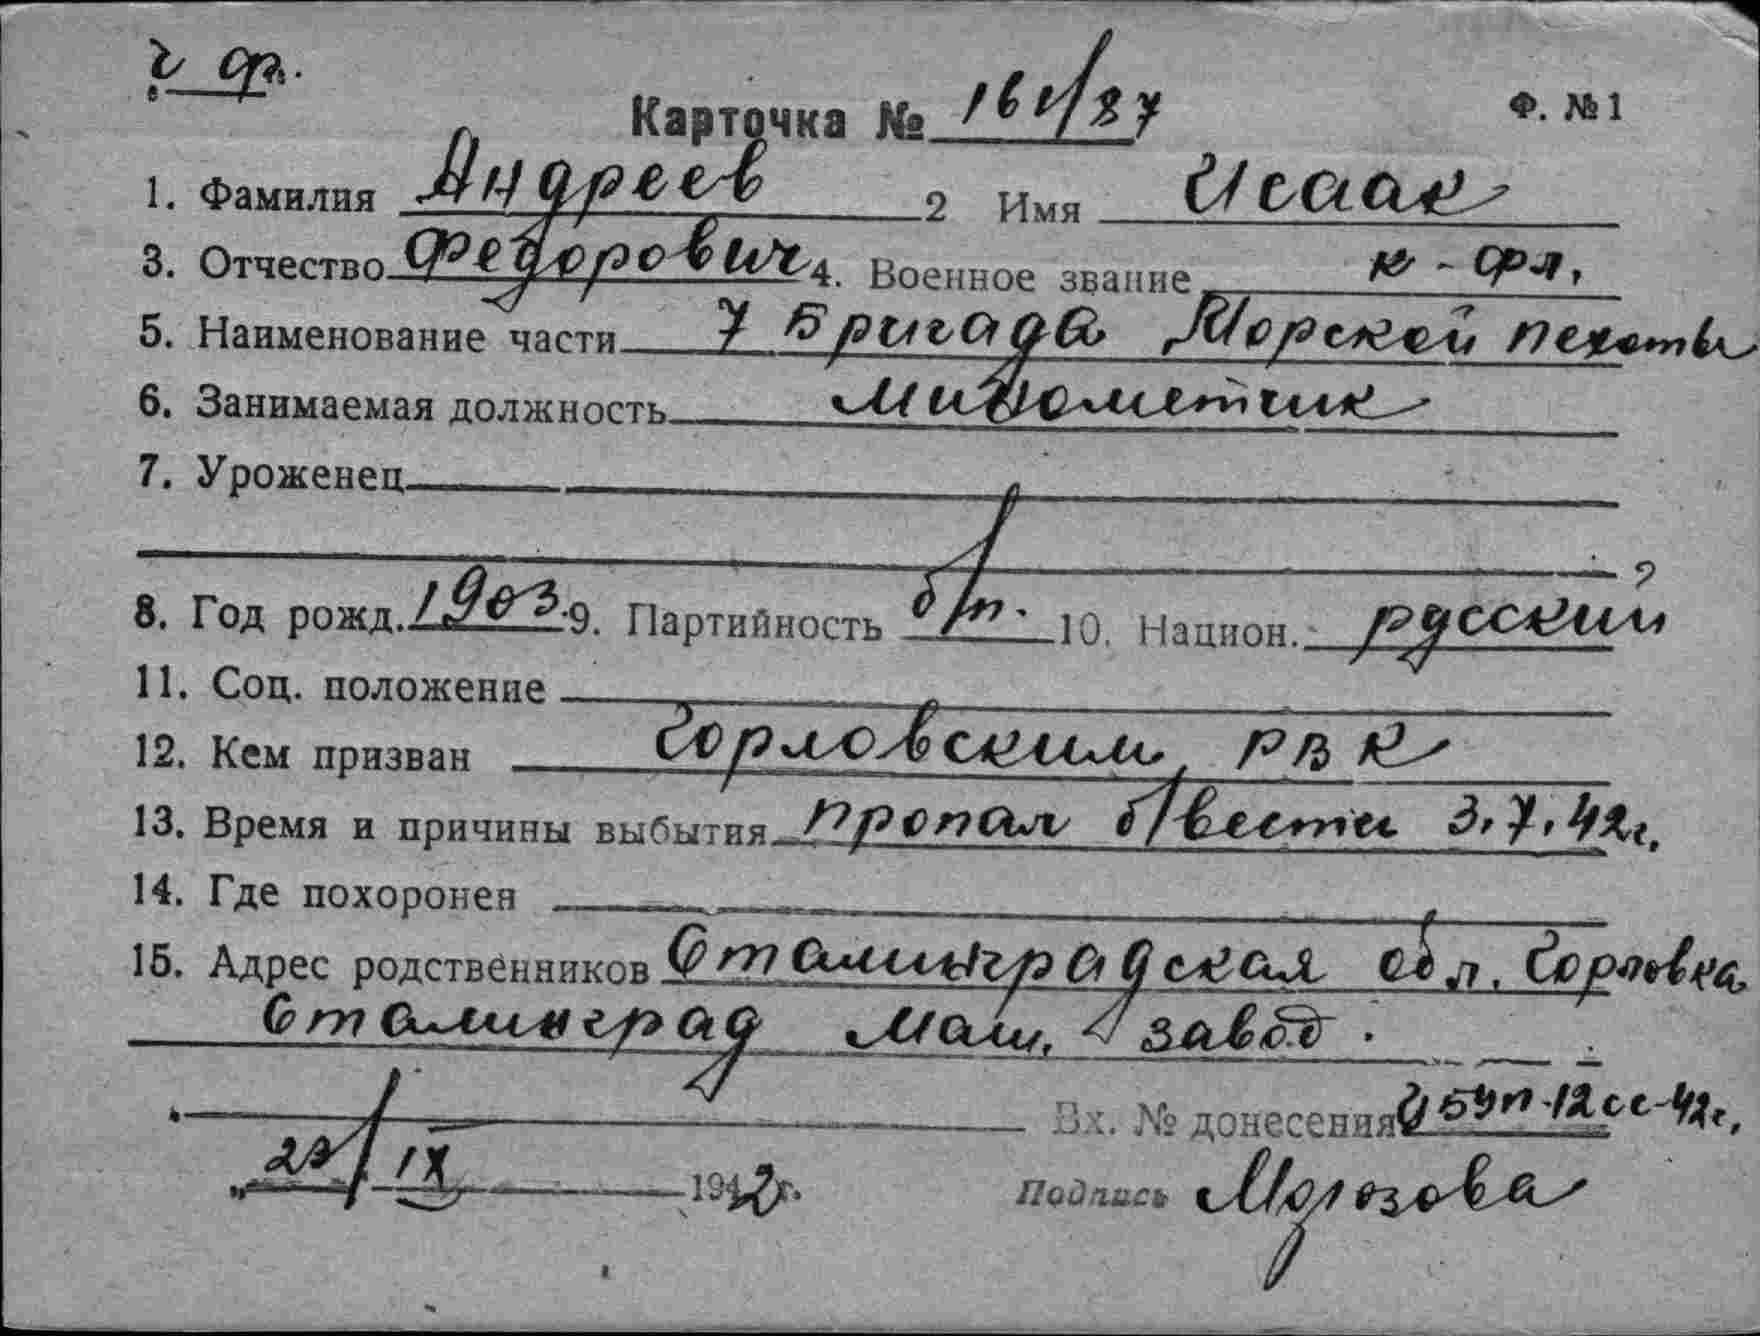 ч ф.
Карточка № 161/27 Ф. № 1
1. Фамилия Андреев 2 Имя Исаак
3. Отчество Федорович 4. Военное звание к-фл.
5. Наименование части 7 Бригада Морской пехоты
6. Занимаемая должность Минометчик
7. Уроженец
8. Год рожд. 1903 9. Партийность б/п. 10. Национ. русский ?
11. Соц. положение
12. Кем призван Горловским РВК
13. Время и причины выбытия пропал б/вести 3.7.42г.
14. Где похоронен
15. Адрес родственников Сталинградская обл. Горловка
Сталинград Маш. завод.
Вх. № донесения 12сс-42г.
„ 29/IX 1942г. Подпись Морозова